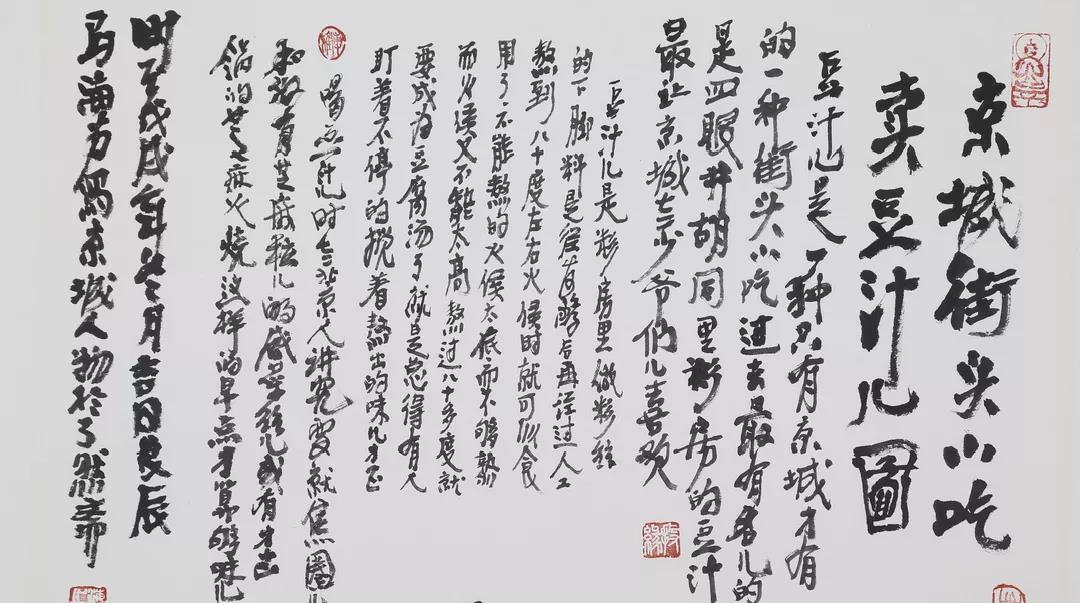 京城街头小吃
卖豆汁儿图
豆汁儿是一种只有京城才有
的一种街头小吃过去最有名儿的
是四眼井胡同里粉房的豆汁
最让京城老少爷们儿喜欢
豆汁儿是粉房里做粉丝
的下脚料是经发酵后再经过人工
熬到八十度左右火候时就可以食
用了不能熬的火候太底而不够熟
而火候又不能太高熬过八十多度就
要成为豆腐汤了就是总得有人
盯着不停的搅着熬出的味儿才正
喝豆汁儿时老北京人讲究要就焦圈儿
和撒有芝麻粒儿的咸菜丝儿或有才出
锅的芝麻火烧这样的早点才算够味儿
时在戊戌年冬月吉日良辰
马海方写京城人物于了然斋